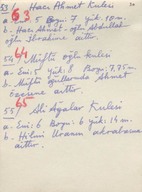 53) Hacı Ahmet Kulesi
63
a. Eni: 5 Boyu: 7 yük: 10 m.
b. Hacı Ahmet oğlu Abdullah
oğlu İbrahime aittir.
54) Müftü oğlu kulesi
64
a. Eni: 5 yük: 8 Boyu: 7,75 m.
b. Müftü oğullarında Ahmet
aittir.
65
55) Ali Ağalar Kulesi
a. Eni: 6 Boyu: 6 yük: 14 m.
b. Hilmi Uranın akrabasına
aittir.